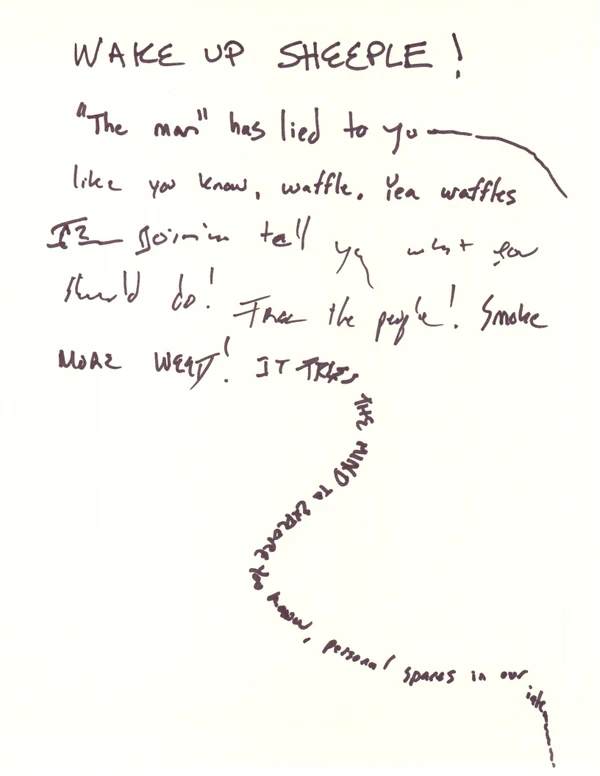 WAKE UP SHEEPLE!
"The man" has lied to yo
like you know, waffle. Yea waffles
tell ya what you
should do! Free the people! Smoke
MORE WEED! IT FREES
THE MIND TO EXPLORE you know, personal spaces in our